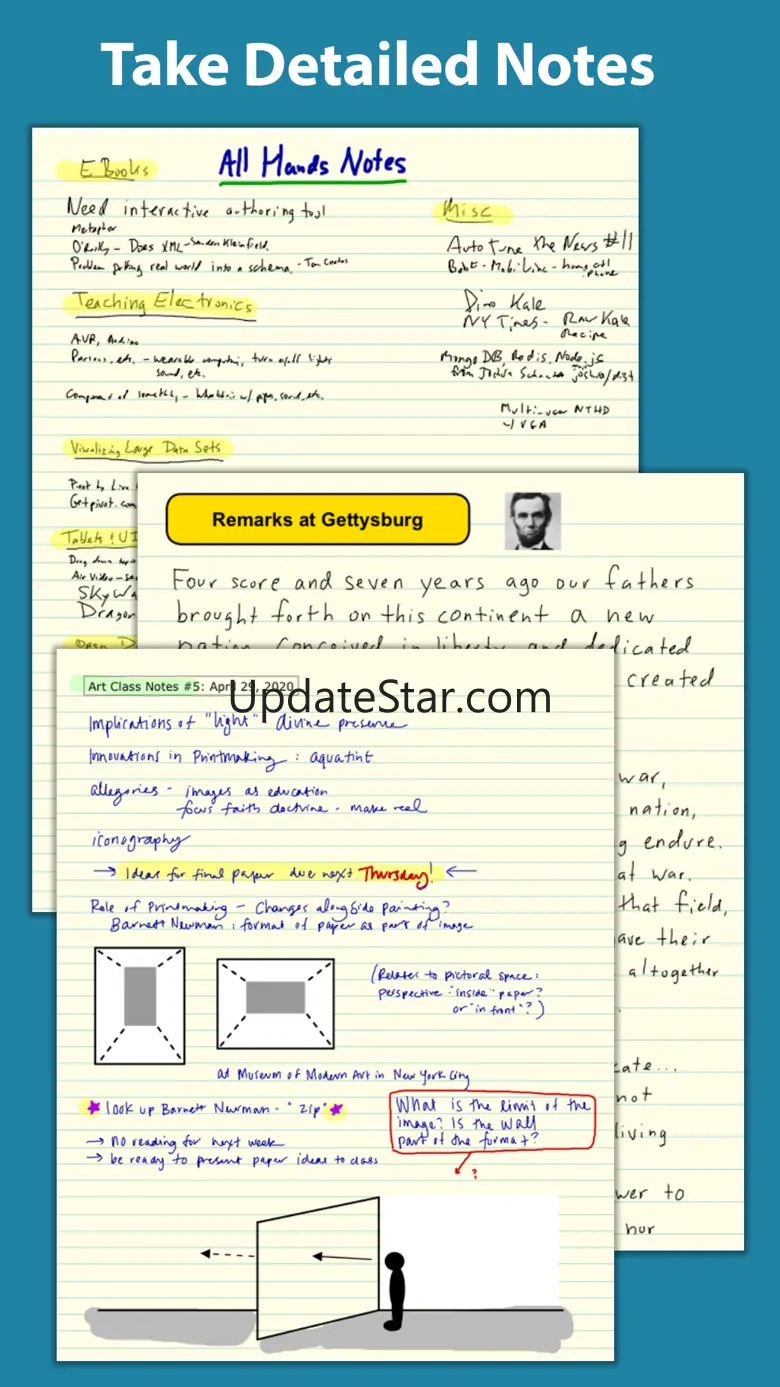 Take Detailed Notes
E Books
All Hands Notes
Need interactive authoring tool
Metaphor
O'Reilly - Does XML -
Problem putting real world into a schema.
Teaching Electronics
AVR,
etc. - wearable computing, turn lights
sound, etc.
w/ sound, etc.
Visualizing Large Data Sets
Pivot by Live
Getpivot.com
Tablets & UI
Drag down
Air Video -
Dragon
Misc
Auto Tune the News #11
phone
Dino Kale
NY Times - Raw Kale
Recipe
Mongo DB, Redis, Node.js
from Joshua
w/ VGA
Remarks at Gettysburg
Four score and seven years ago our fathers
brought forth on this continent a new
nation, conceived in liberty and dedicated
created
war,
nation,
endure.
at war.
that field,
their
altogether
not
living
to
nor
Art Class Notes #5: April 29, 2020
UpdateStar.com
Implications of "light" divine presence
Innovations in Printmaking : aquatint
allegories - images as education
focus faith doctrine - make real
iconography
→ Ideas for final paper due next Thursday! ←
Role of Printmaking - Changes alongside painting?
Barnett Newman : format of paper as part of image
(Relates to pictoral space:
perspective "inside" paper?
or "in front"?)
at Museum of Modern Art in New York City
look up Barnett Newman - "zip"
→ no reading for next week
→ be ready to present paper ideas to class
What is the limit of the
image? Is the wall
part of the format?
?